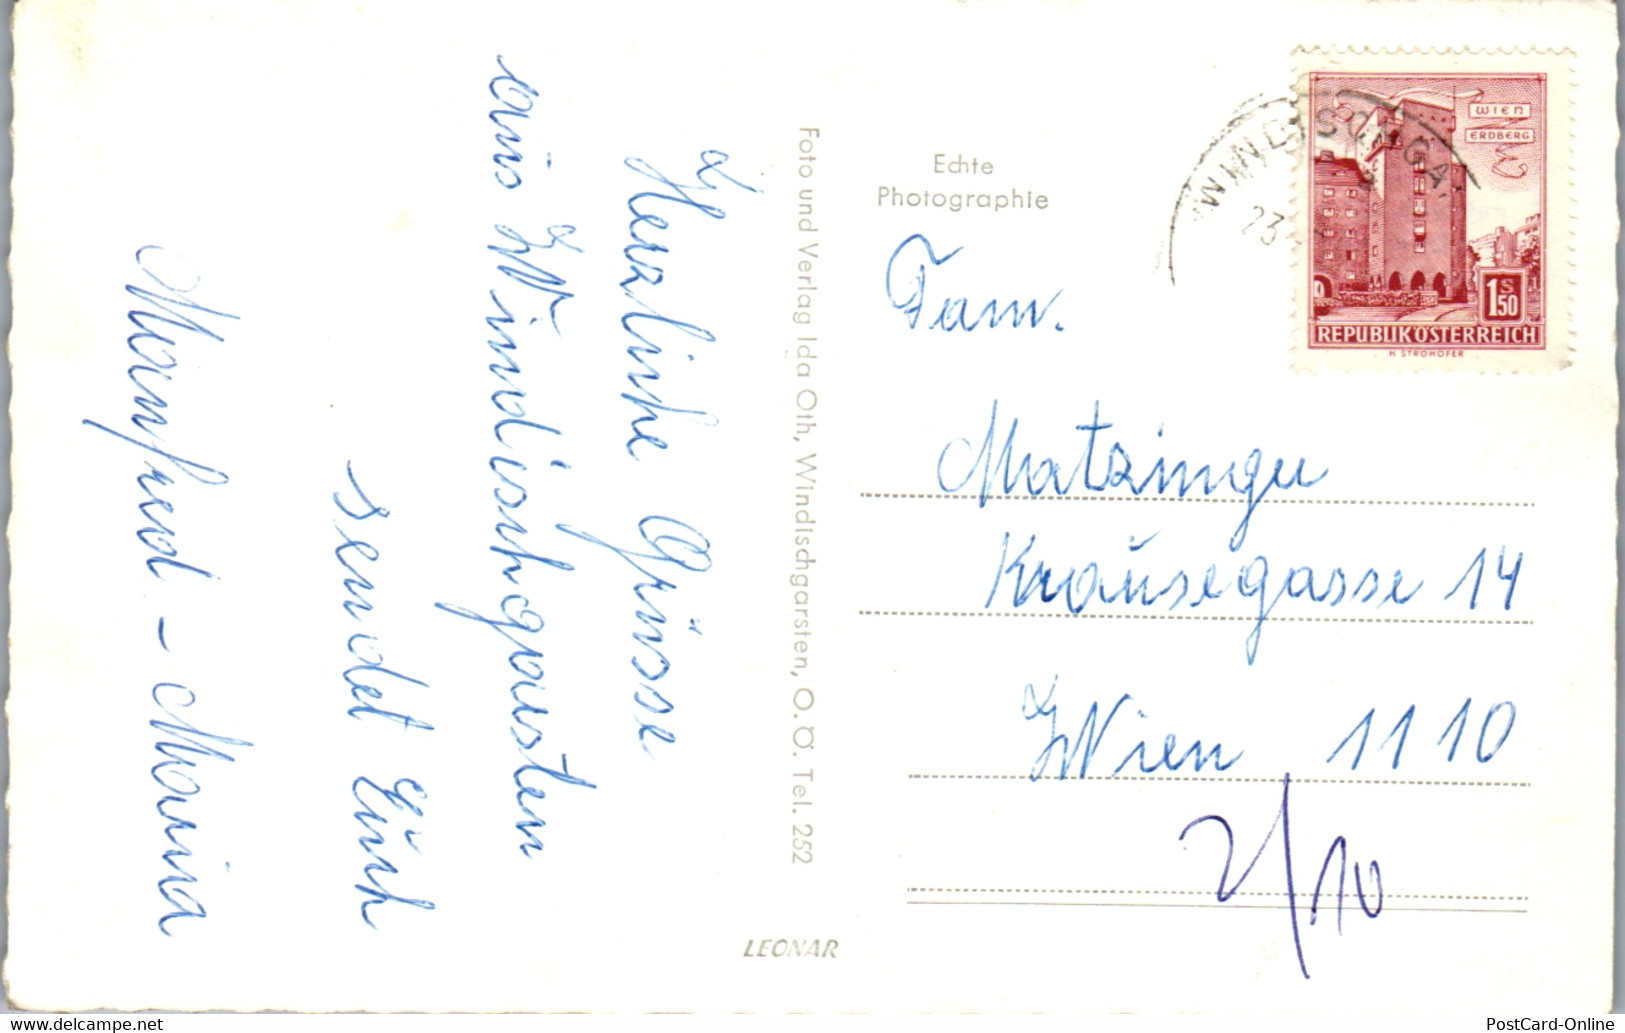 Herzliche Grüsse
aus Windischgarsten
sendet Euch
Manfred - Maria
Foto und Verlag Ida Oth, Windischgarsten, O.Ö. Tel. 252
LEONAR
Echte
Photographie
WINDISCHGA
23.
WIEN
ERDBERG
1S50
REPUBLIK ÖSTERREICH
H. STROHOFER
Fam.
Matzinger
Krausegasse 14
Wien 1110
2/10
delcampe.net
PostCard-Online